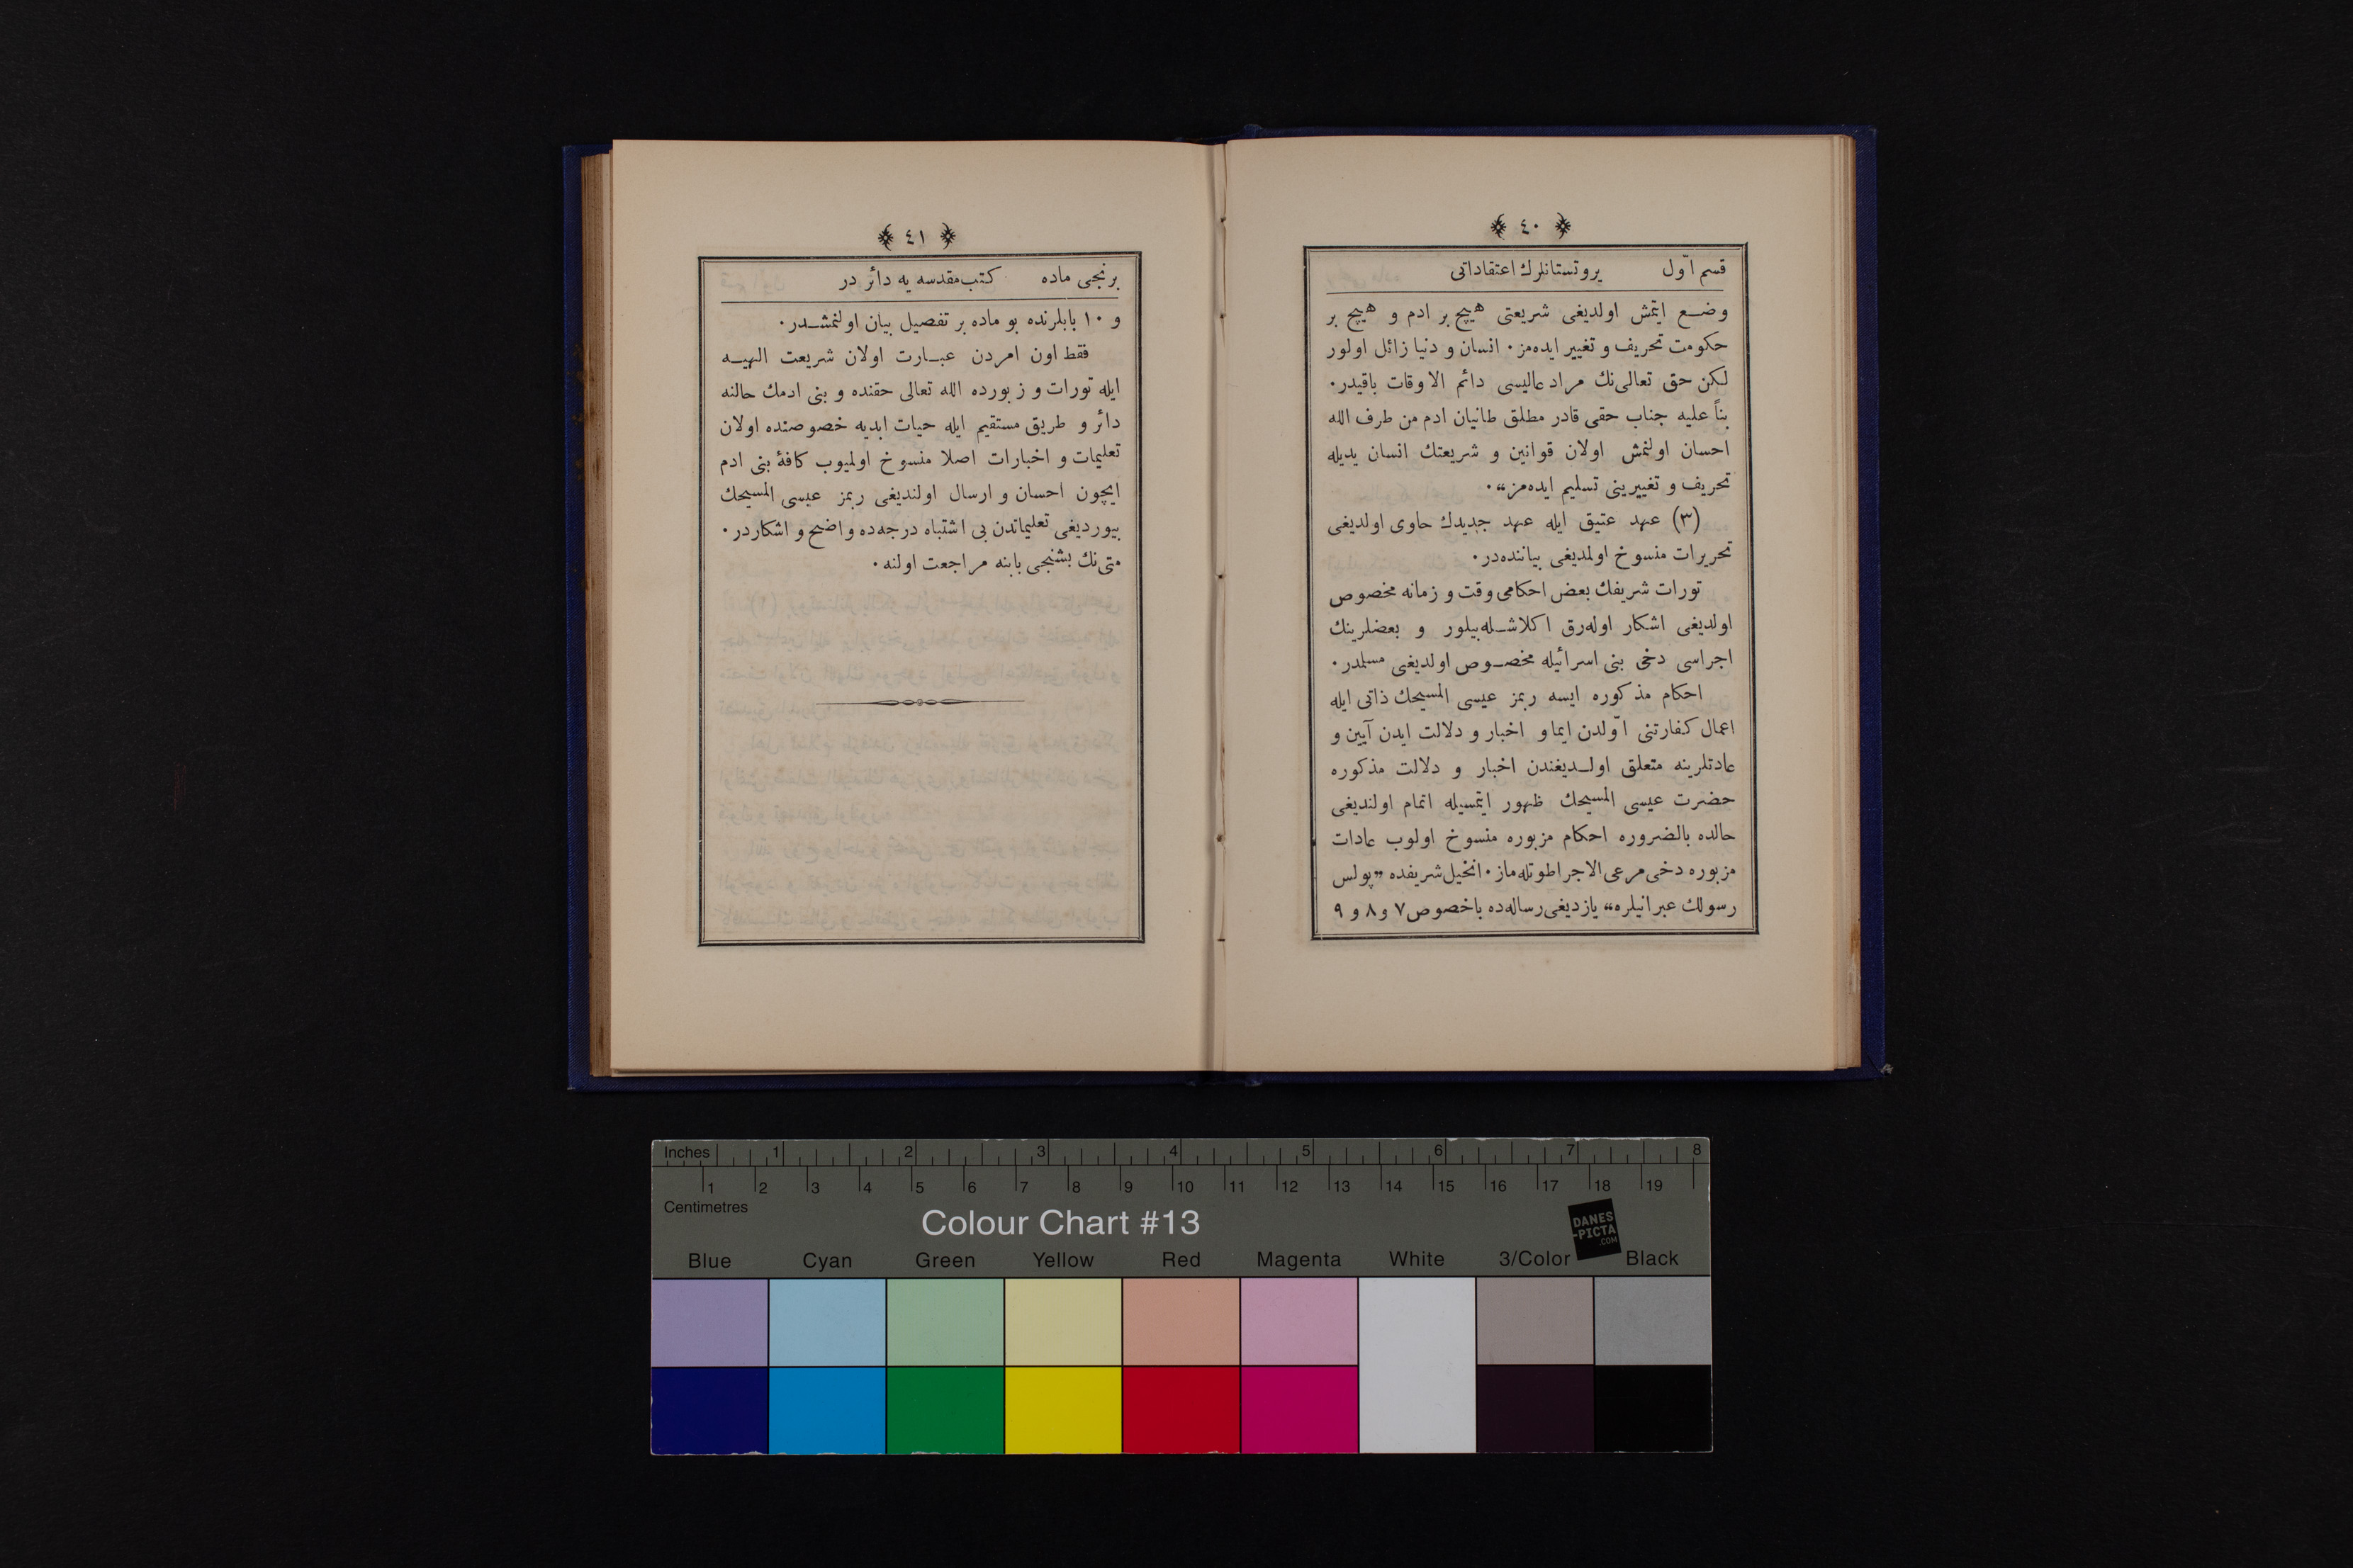 ﴿ ٤٠ ﴾
قسم اوّل پروتستانلرك اعتقاداتی
وضع ایتمش اولدیغی شریعتی هیچ بر ادم و هیچ بر
حکومت تحریف و تغییر ایده‌مز. انسان و دنیا زائل اولور
لکن حق تعالی‌نك مراد عالیسی دائم الاوقات باقیدر.
بناً علیه جناب حقی قادر مطلق طانیان ادم من طرف الله
احسان اولنمش اولان قوانین و شریعتك انسان یدیله
تحریف و تغییرینی تسلیم ایده‌مز“.
(٣) عهد عتیق ایله عهد جدیدك حاوی اولدیغی
تحریرات منسوخ اولمدیغی بیاننده‌در.
تورات شریفك بعض احکامی وقت و زمانه مخصوص
اولدیغی اشکار اوله‌رق اکلاشله‌بیلور و بعضلرینك
اجراسی دخی بنی اسرائیله مخصوص اولدیغی مسلمدر.
احکام مذکوره ایسه ربمز عیسی المسیحك ذاتی ایله
اعمال کفارتنی اوّلدن ایما و اخبار و دلالت ایدن آیین و
عادتلرینه متعلق اولدیغندن اخبار و دلالت مذکوره
حضرت عیسی المسیحك ظهور ایتمسیله اتمام اولندیغی
حالده بالضروره احکام مزبوره منسوخ اولوب عادات
مزبوره دخی مرعی الاجرا طوتله‌ماز. انجیل شریفده „پولس
رسولك عبرانیلره“ یازدیغی رساله‌ده باخصوص ٧ و ٨ و ٩
﴿ ٤١ ﴾
برنجی ماده کتب مقدسه یه دائر در
و ١٠ بابلرنده بو ماده بر تفصیل بیان اولنمشدر.
فقط اون امردن عبارت اولان شریعت الهیه
ایله تورات و زبورده الله تعالی حقنده و بنی ادمك حالنه
دائر و طریق مستقیم ایله حیات ابدیه خصوصنده اولان
تعلیمات و اخبارات اصلا منسوخ اولمیوب کافهٔ بنی ادم
ایچون احسان و ارسال اولندیغی ربمز عیسی المسیحك
بیوردیغی تعلیماتدن بی اشتباه درجه‌ده واضح و اشکاردر.
متی‌نك بشنجی بابنه مراجعت اولنه.
Inches 1 2 3 4 5 6 7 8
1 2 3 4 5 6 7 8 9 10 11 12 13 14 15 16 17 18 19
Centimetres
Colour Chart #13
DANES
-PICTA
.COM
Blue Cyan Green Yellow Red Magenta White 3/Color Black